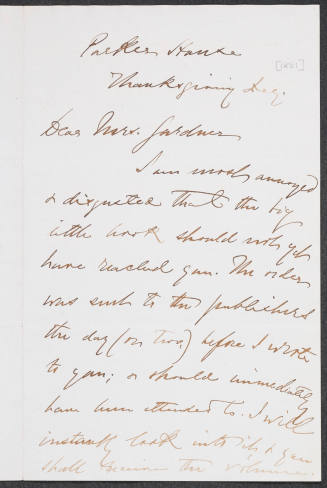 Parker House
[1881]
Thanksgiving Day.
Dear Mrs. Gardner
I am most annoyed
& disgusted that the big
little book should not yet
have reached you. The order
was sent to the publishers
the day (or two) before I wrote
to you; & should immediately
have been attended to. I will
instantly look into it & you
shall receive the volume.